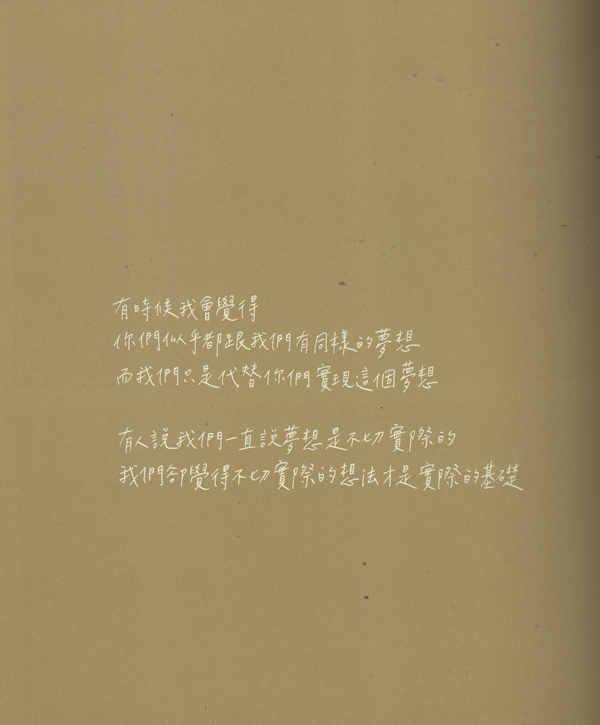 有時候我會覺得
你們似乎都跟我們有同樣的夢想
而我們只是代替你們實現這個夢想
有人說我們一直說夢想是不切實際的
我們卻覺得不切實際的想法才是實際的基礎